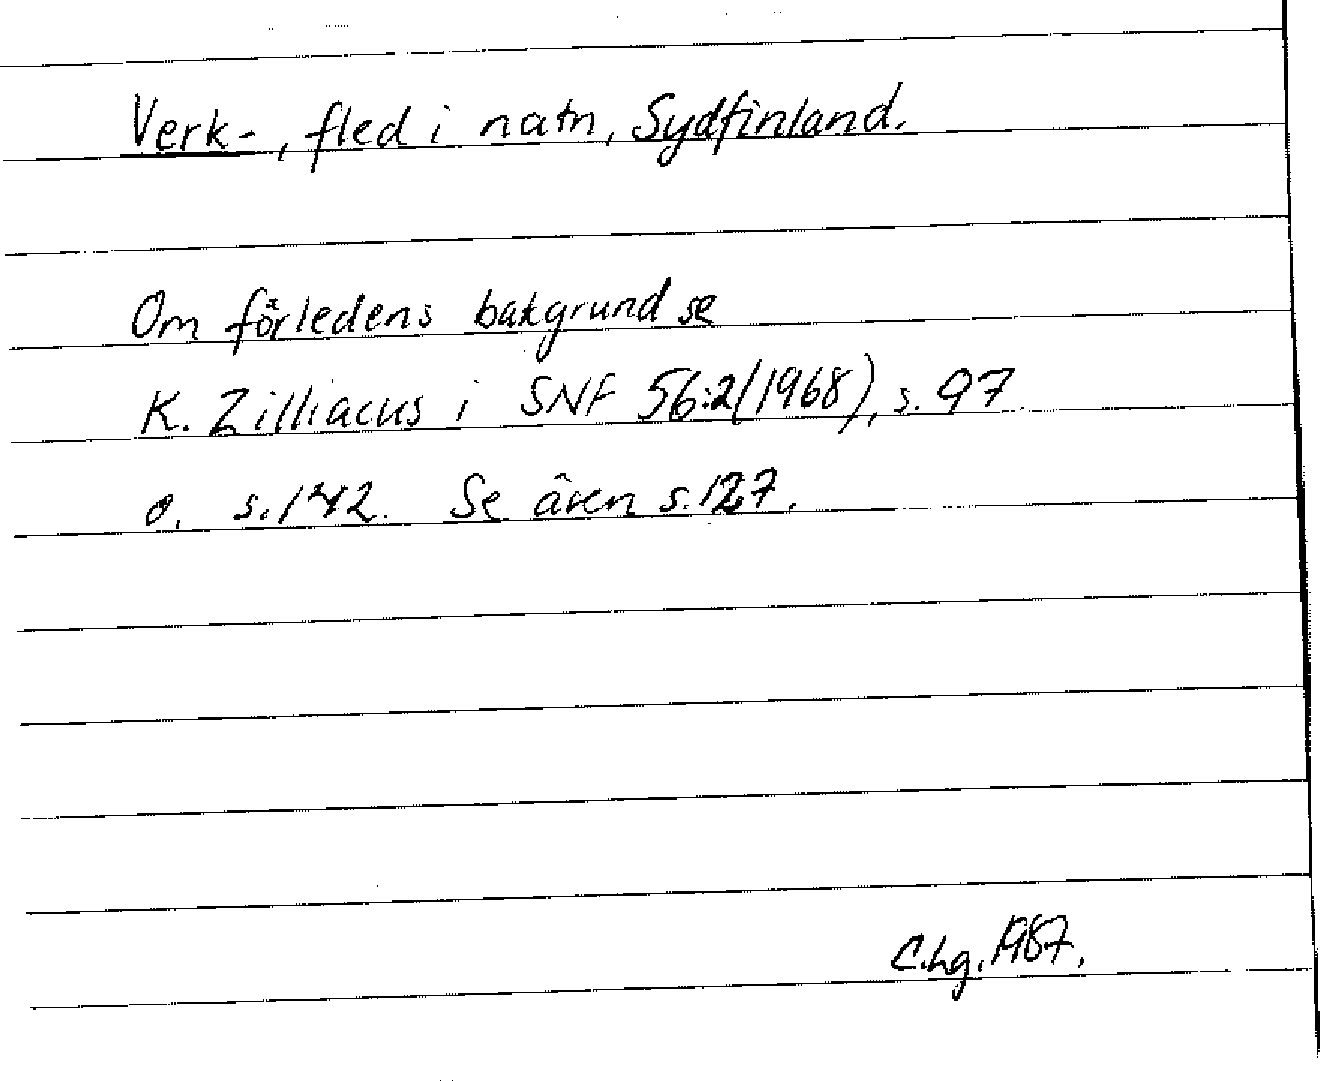 Verk-, fled i natn, Sydfinland.
Om förledens bakgrund se
K. Zilliacus i SNF 56:2(1968), s. 97
o. s. 142. Se även s. 127.
C.hg. 1987.